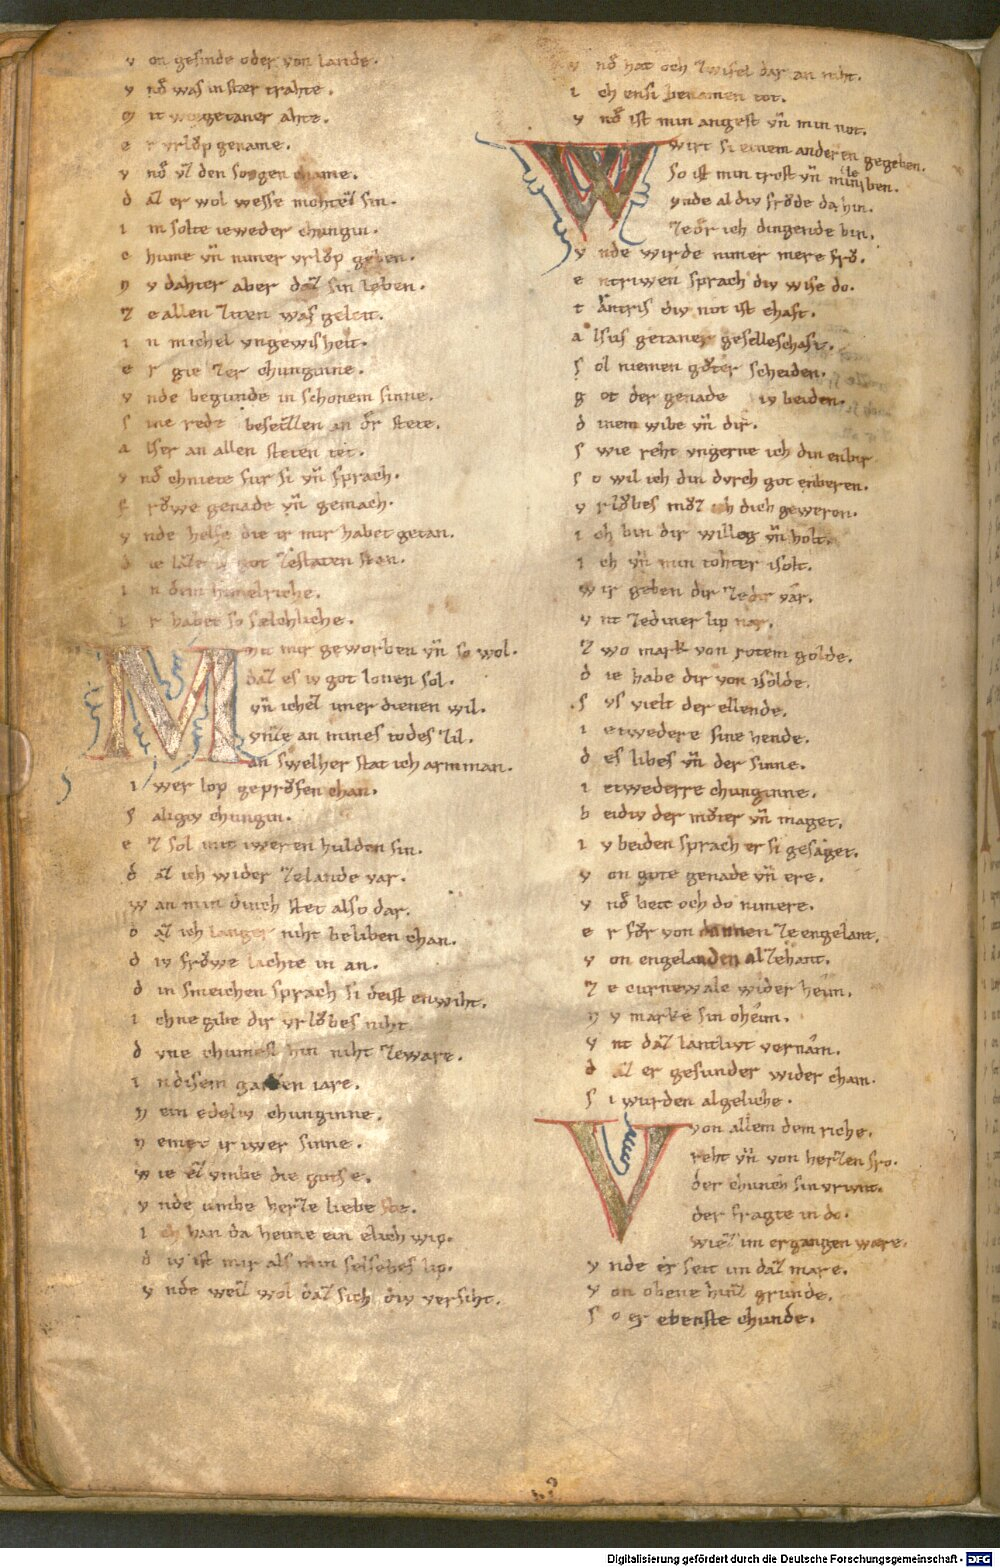 von gesinde oder von lande.
vnͦ was in stær trahte.
mit wogetaner ahte.
er vrloͮp gename.
vnͦ vz den sorgen chame.
daz er wol wesse mohtez sin.
im solte ieweder chungin.
chume vn̄ nimer vrloͮp geben.
nv dahter aber daz sin leben.
ze allen ziten was geleit.
in michel vngewisheit.
er gie zer chunginne.
vnde begunde in schonem sinne.
sine rede beseitten an dͦr stete.
alser an allen steten tet.
vnͦ chniete fur si vn̄ sprach.
froͮwe genade vn̄ gemach.
vnde helfe die ir mir habet getan.
die laze iv got ze staten stan.
in dem himelriche.
ir habet so sælchliche.
Mit mir geworben vn̄ so wol.
daz es iv got lonen sol.
vn̄ ichz imer dienen wil.
vnze an mines todes zil.
an swelher stat ich arm man.
iwer lop gepruͦfen chan.
saligiv chungin.
ez sol mit iweren hulden sin.
daz ich wider ze lande var.
wan min dinch stet also dar.
daz ich langer niht beliben chan.
div froͮwe lachte in an.
din smeichen sprach si deist enwiht.
ichne gibe dir vrloͮbes niht.
dvne chumest hin niht zeware.
in disem ganzen iare.
nein edeliv chunginne.
nemet ir iwer sinne.
wie ez vmbe die gotes e.
vnde umbe herze liebe ste.
ich han da heime ein elich wip.
div ist mir als min selbes lip.
vnde weiz wol daz sich div versiht.
vnͦ hat och zwifel dar an niht.
ich ensi benamen tot.
vnͦ ist min angest vn̄ min not.
Wirt si einem anderen gegeben.
So ist min trost vn̄ min leben.
vnde al div froͮde da hin.
zeder ich dingende bin.
vnde wirde nimer mere fro.
entriwen sprach div wise do.
tantris div not ist ehaft.
alsus getaner geselleschaft.
sol niemen guͦter scheiden.
got der genade iv beiden.
dinem wibe vn̄ dir.
swie reht vngerne ich din enbir
so wil ich din dvrch got enberen.
vrloͮbes muͦz ich dich geweren.
ich bin dir willeg vn̄ holt.
ich vn̄ min tohter isolt.
wir geben dir zediner var.
vnt zediner lip nar.
zwo mark von rotem golde.
die habe dir von isolde.
svs vielt der ellende.
ietwedere sine hende.
des libes vn̄ der sinne.
ietwederre chunginne.
beidiv der muͦter vn̄ maget.
iv beiden sprach er si gesaget.
von gote genade vn̄ ere.
vnͦ beit och do nimere.
er fuͦr von dannen ze engelant.
von engelanden al zehant.
ze curnewale wider heim.
nv marke sin oheim.
vnt daz lantlivt vernam.
daz er gesunder wider cham.
si wurden algeliche.
Von allem dem riche.
reht vn̄ von herzen fro.
der chunich sin vrivnt.
der fragte in do.
wiez im ergangen wære.
vnde er seit im daz mære.
von obene hinz grunde.
so er ebenste chunde.
Digitalisierung gefördert durch die Deutsche Forschungsgemeinschaft - DFG